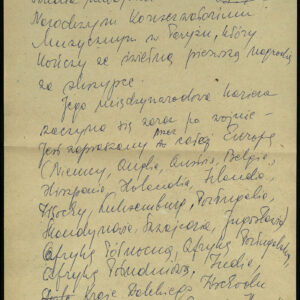 Narodowym Konserwatorium
Muzycznym w Paryżu, który
kończy ze świetną pierwszą nagrodą
za skrzypce.
Jego międzynarodowa kariera
zaczyna się zaraz po wojnie –
Jest zapraszany przez całą Europę
(Niemcy, Anglia, Austria, Belgia,
Hiszpania, Holandia, Irlandia,
Włochy, Luksemburg, Portugalia,
Skandynawia, Szwajcaria, Jugosławia)
Afryka Północna, Afryka Portugalska,
Afryka Południowa, Indie,
Kraje Dalekiego Wschodu